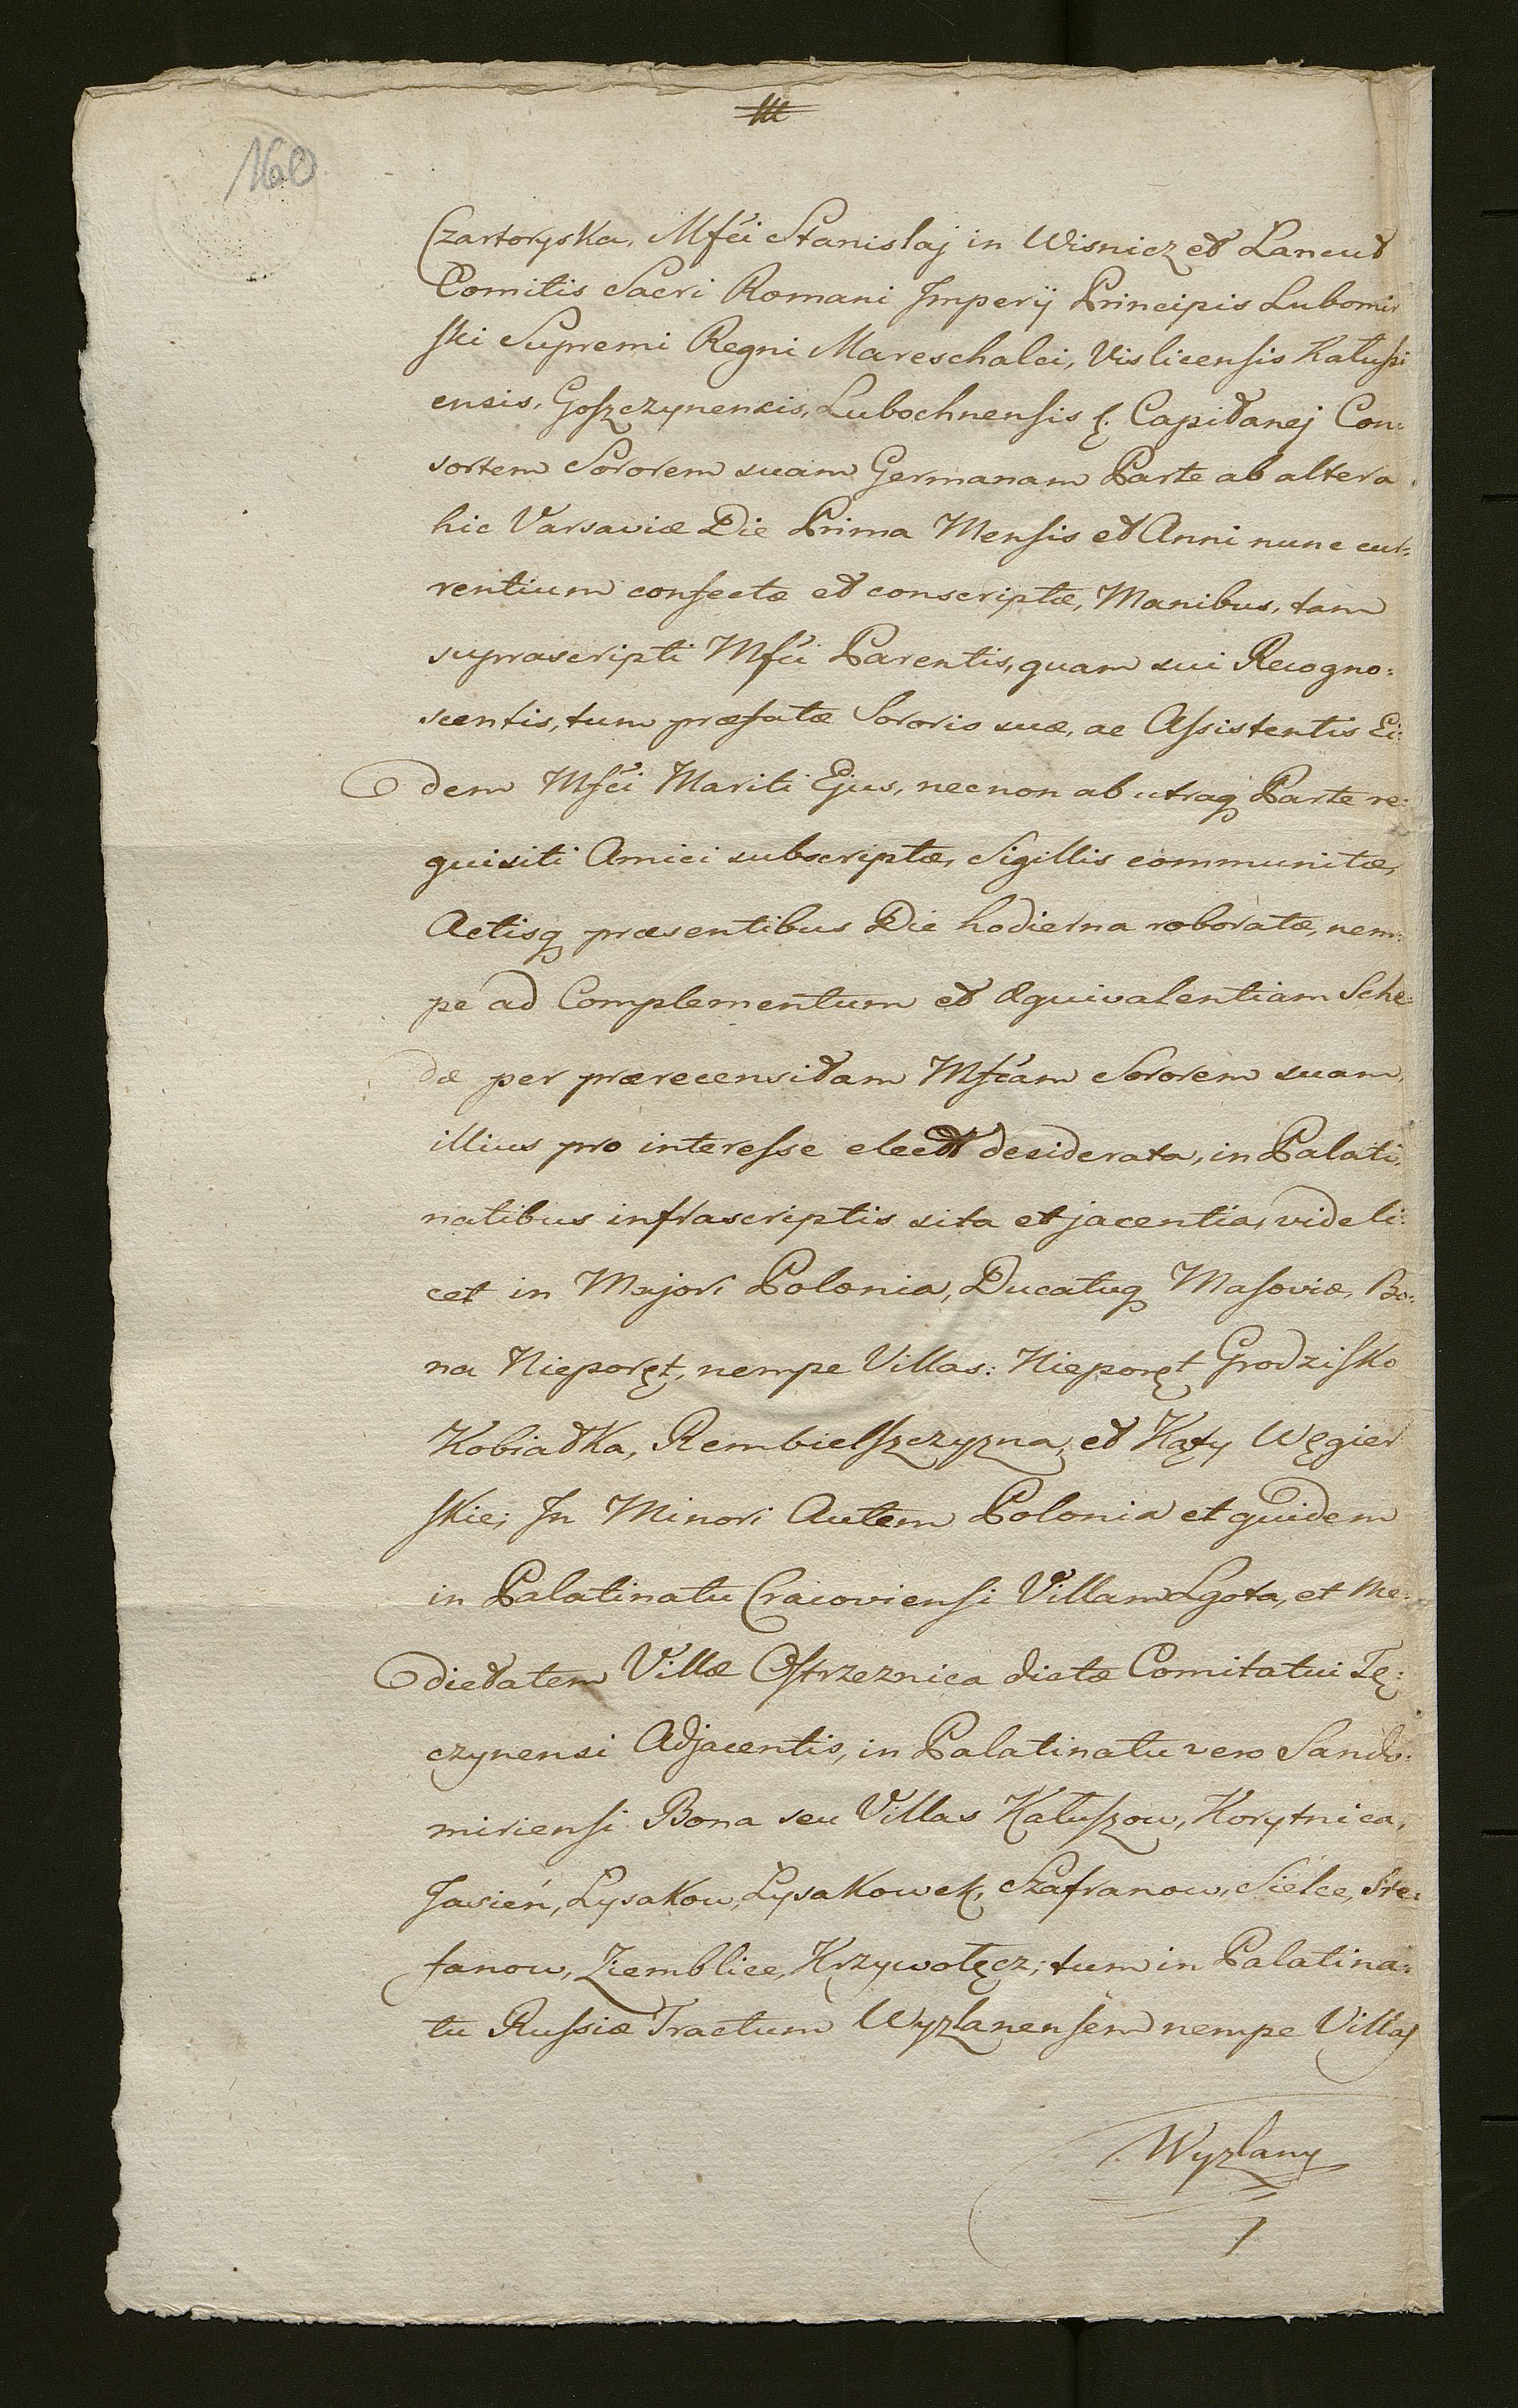 III
160
Czartoryska, Mfci Stanislaj in Wisnicz et Lancut
Comitis Sacri Romani Imperij Principis Lubomir
ski Supremi Regni Mareschalci, Vislicensis Kałuszi
ensis, Goszczynensis, Lubochnensis Capitanej Con:
sortem Sororem suam Germanam Parte ab altera
hic Varsaviæ Die Prima Mensis et Anni nunc cur:
rentium confectæ et conscriptæ, Manibus, tam
suprascripti Mfci Parentis, quam sui Recogno:
scentis, tum præfatæ Sororis suæ, ac Assistentis Ei:
dem Mfci Mariti Ejus, necnon ab utraq Parte re:
quisiti Amici subscriptæ, Sigillis communitæ,
Actisq præsentibus Die hodierna roboratæ, nem:
pe ad Complementum et Æquivalentiam Sche:
dæ per prærecensitam Mfcam Sororem suam,
illius pro interesse desiderata, in Palati:
natibus infrascriptis sita et jacentia, videli:
cet in Majori Polonia, Ducatuq Masoviæ, Bo:
na Nieporęt, nempe Villas: Nieporęt Grodzisko
Kobiatka, Rembielszczyzna, et Kąty Węgier
skie; In Minori Autem Polonia et quidem
in Palatinatu Cracoviensi Villam Lgota, et Me:
dietatem Villæ Ostrzeznica dictæ Comitatui Tę:
czynensi Adjacentis, in Palatinatu vero Sando:
miriensi Bona seu Villas Kałuszow, Korytnica,
Jasień, Lysakow, Lysakowek, Szafranow, Sielce, Ste:
fanow, Ziemblice, Krzywołęcz; tum in Palatina:
tu Russiæ Tractum Wyzlanensem nempe Villas
Wyzlany